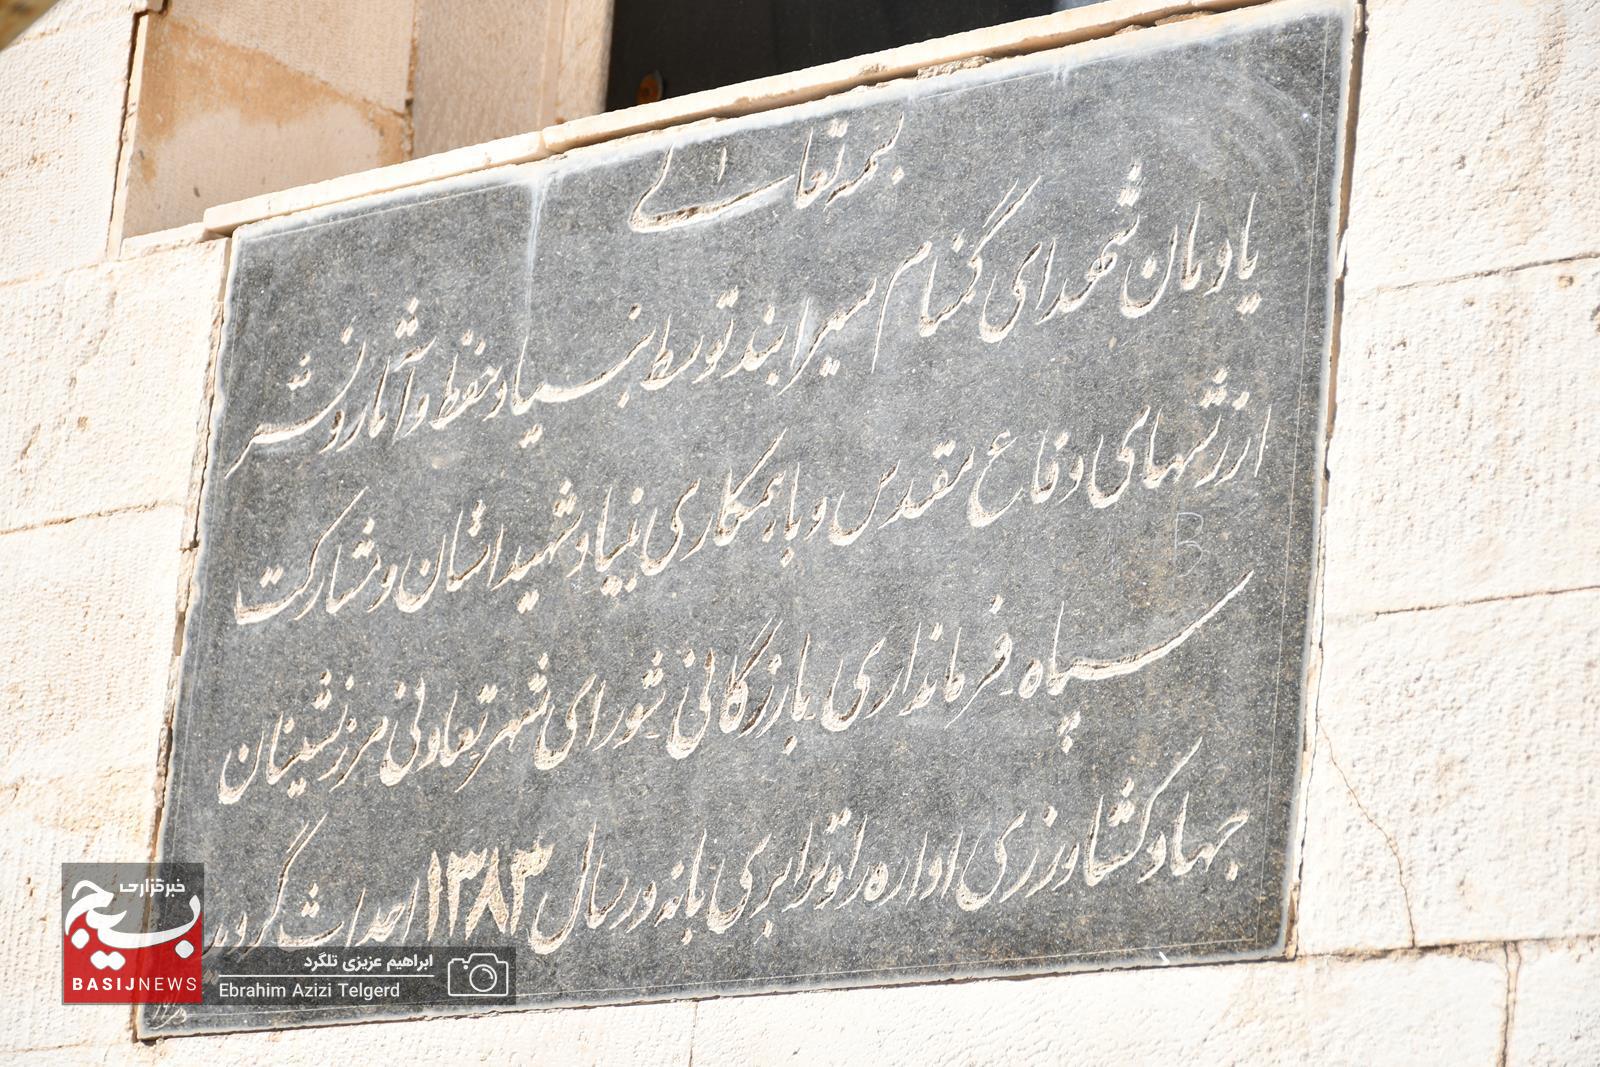 بسمه تعالی
یادمان شهدای گمنام سیرانبند توسط بنیاد حفظ و آثار و نشر
ارزشهای دفاع مقدس و با همکاری بنیاد شهید استان و مشارکت
سپاه فرمانداری بازرگانی شورای شهر تعاونی مرزنشینان
جهاد کشاورزی اداره راه و ترابری بانه در سال ۱۳۸۳ احداث گردید
B
خبرگزاری
بسیج
BASIJNEWS
ابراهیم عزیزی تلگرد
Ebrahim Azizi Telgerd